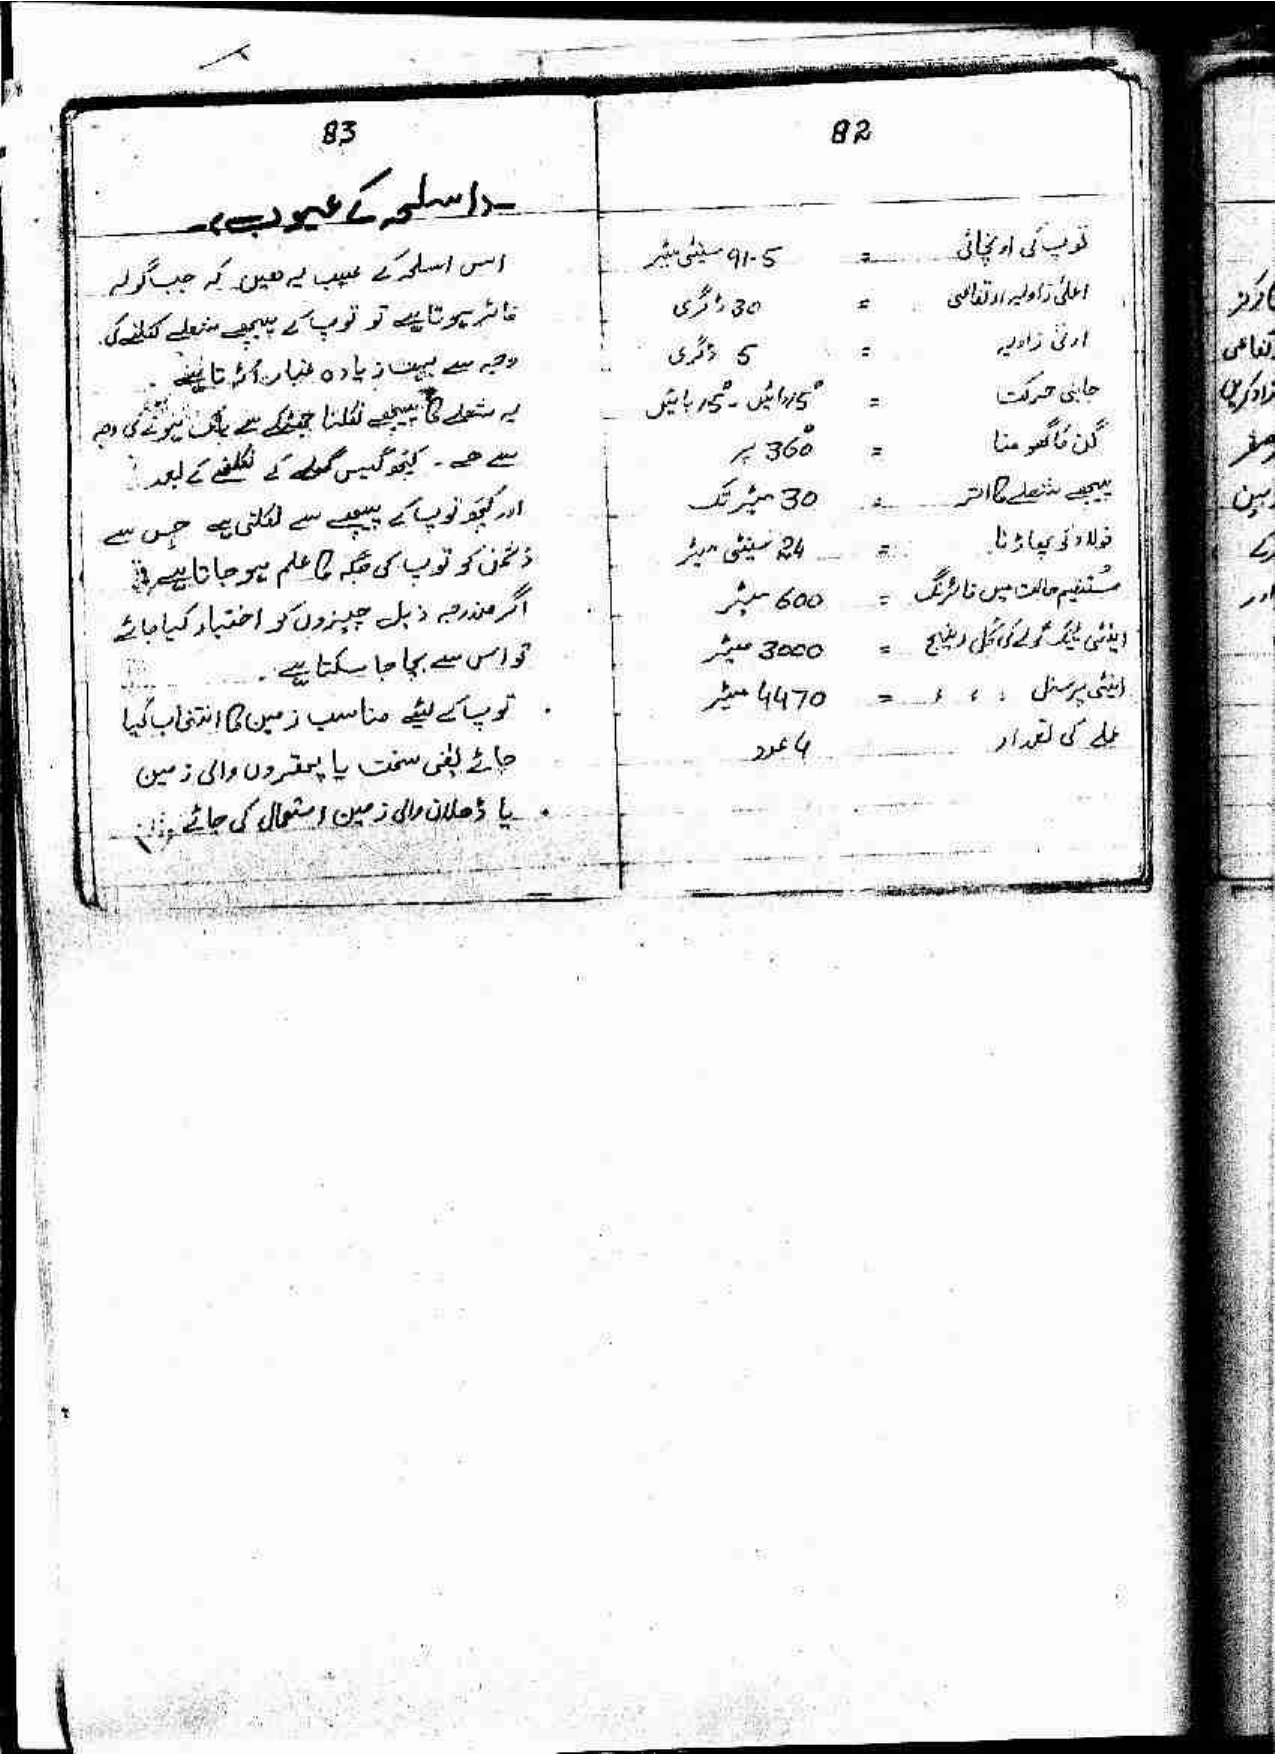 82
توپ کی اونچائی = 91.5 سینٹی میٹر
اعلیٰ زاویہ ارتفاعی = 30 ڈگری
ادنیٰ زاویہ = 5 ڈگری
جانبی حرکت = 15° دائیں - 15° بائیں
گن کا گھومنا = 360° پر
پیچھے شعلے کا اثر = 30 میٹر تک
فولاد کو پھاڑنا = 24 سینٹی میٹر
مستقیم حالت میں فائرنگ = 600 میٹر
اینٹی ٹینک گولے کی کل رینج = 3000 میٹر
اینٹی پرسنل ، ، ، = 4470 میٹر
عملے کی تعداد 4 عدد
83
اسلحہ کے عیوب
اس اسلحہ کے عیب یہ ھیں کہ جب گولہ
فائر ہوتا ہے تو توپ کے پیچھے شعلے نکلنے کی
وجہ سے بہت زیادہ غبار اڑتا ہے۔
یہ شعلے کا پیچھے نکلنا جھٹکے سے پاک ہونے کی وجہ
سے ھے۔ کچھ گیس گولے کے نکلنے کے بعد
اور کچھ توپ کے پیچھے سے نکلتی ہے جس سے
دشمن کو توپ کی جگہ کا علم ہو جاتا ہے
اگر مندرجہ ذیل چیزوں کو اختیار کیا جائے
تو اس سے بچا جا سکتا ہے۔
. توپ کے لیئے مناسب زمین کا انتخاب کیا
جائے یعنی سخت یا پتھروں والی زمین
. یا ڈھلان والی زمین استعمال کی جائے